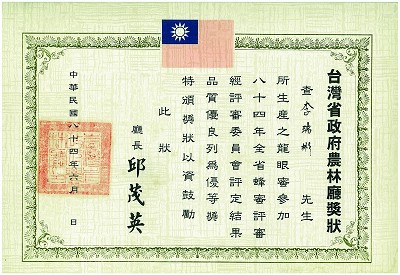 台灣省政府農林廳獎狀
查李瑞彬 先生
所生產之龍眼蜜參加
八十四年全省蜂蜜評審
經評審委員會評定結果
品質優良列為優等獎
特頒獎狀以資鼓勵
此狀
廳長 邱茂英
中華民國八十四年六月 日